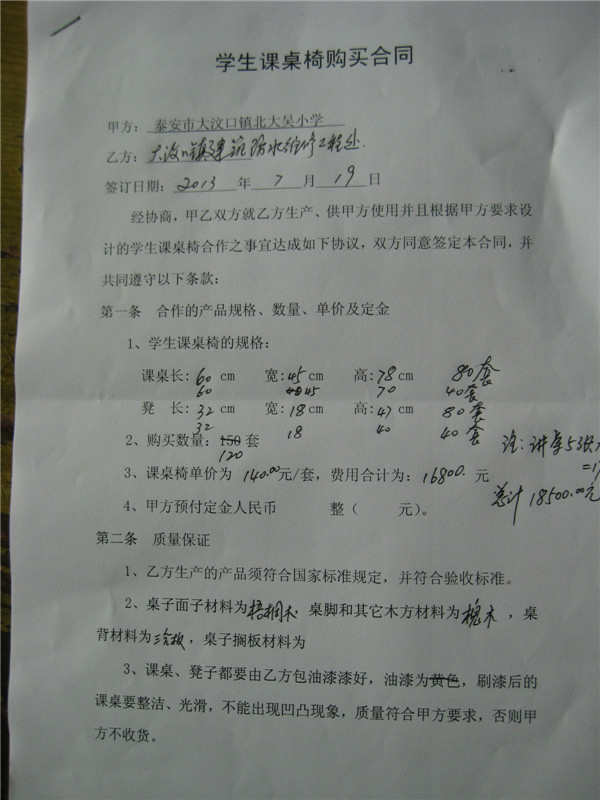 学生课桌椅购买合同
甲方：泰安市大汶口镇北大吴小学
乙方：大汶口镇建筑防水维修工程处
签订日期：2013年7月19日
经协商，甲乙双方就乙方生产、供甲方使用并且根据甲方要求设
计的学生课桌椅合作之事宜达成如下协议，双方同意签定本合同，并
共同遵守以下条款：
第一条 合作的产品规格、数量、单价及定金
1、学生课桌椅的规格：
课桌长：60 cm 宽：45 cm 高：78 cm 80套
60 45 70 40套
凳 长：32 cm 宽：18 cm 高：47 cm 80套
32 18 40 40套
2、购买数量：150 套
120
注：讲桌5张
3、课桌椅单价为 140.00元/套，费用合计为：16800. 元
总计 18500.00元
4、甲方预付定金人民币 整（ 元）。
第二条 质量保证
1、乙方生产的产品须符合国家标准规定，并符合验收标准。
2、桌子面子材料为梧桐木 桌脚和其它木方材料为 槐木，桌
背材料为三合板，桌子搁板材料为
3、课桌、凳子都要由乙方包油漆漆好，油漆为黄色，刷漆后的
课桌要整洁、光滑，不能出现凹凸现象，质量符合甲方要求，否则甲
方不收货。